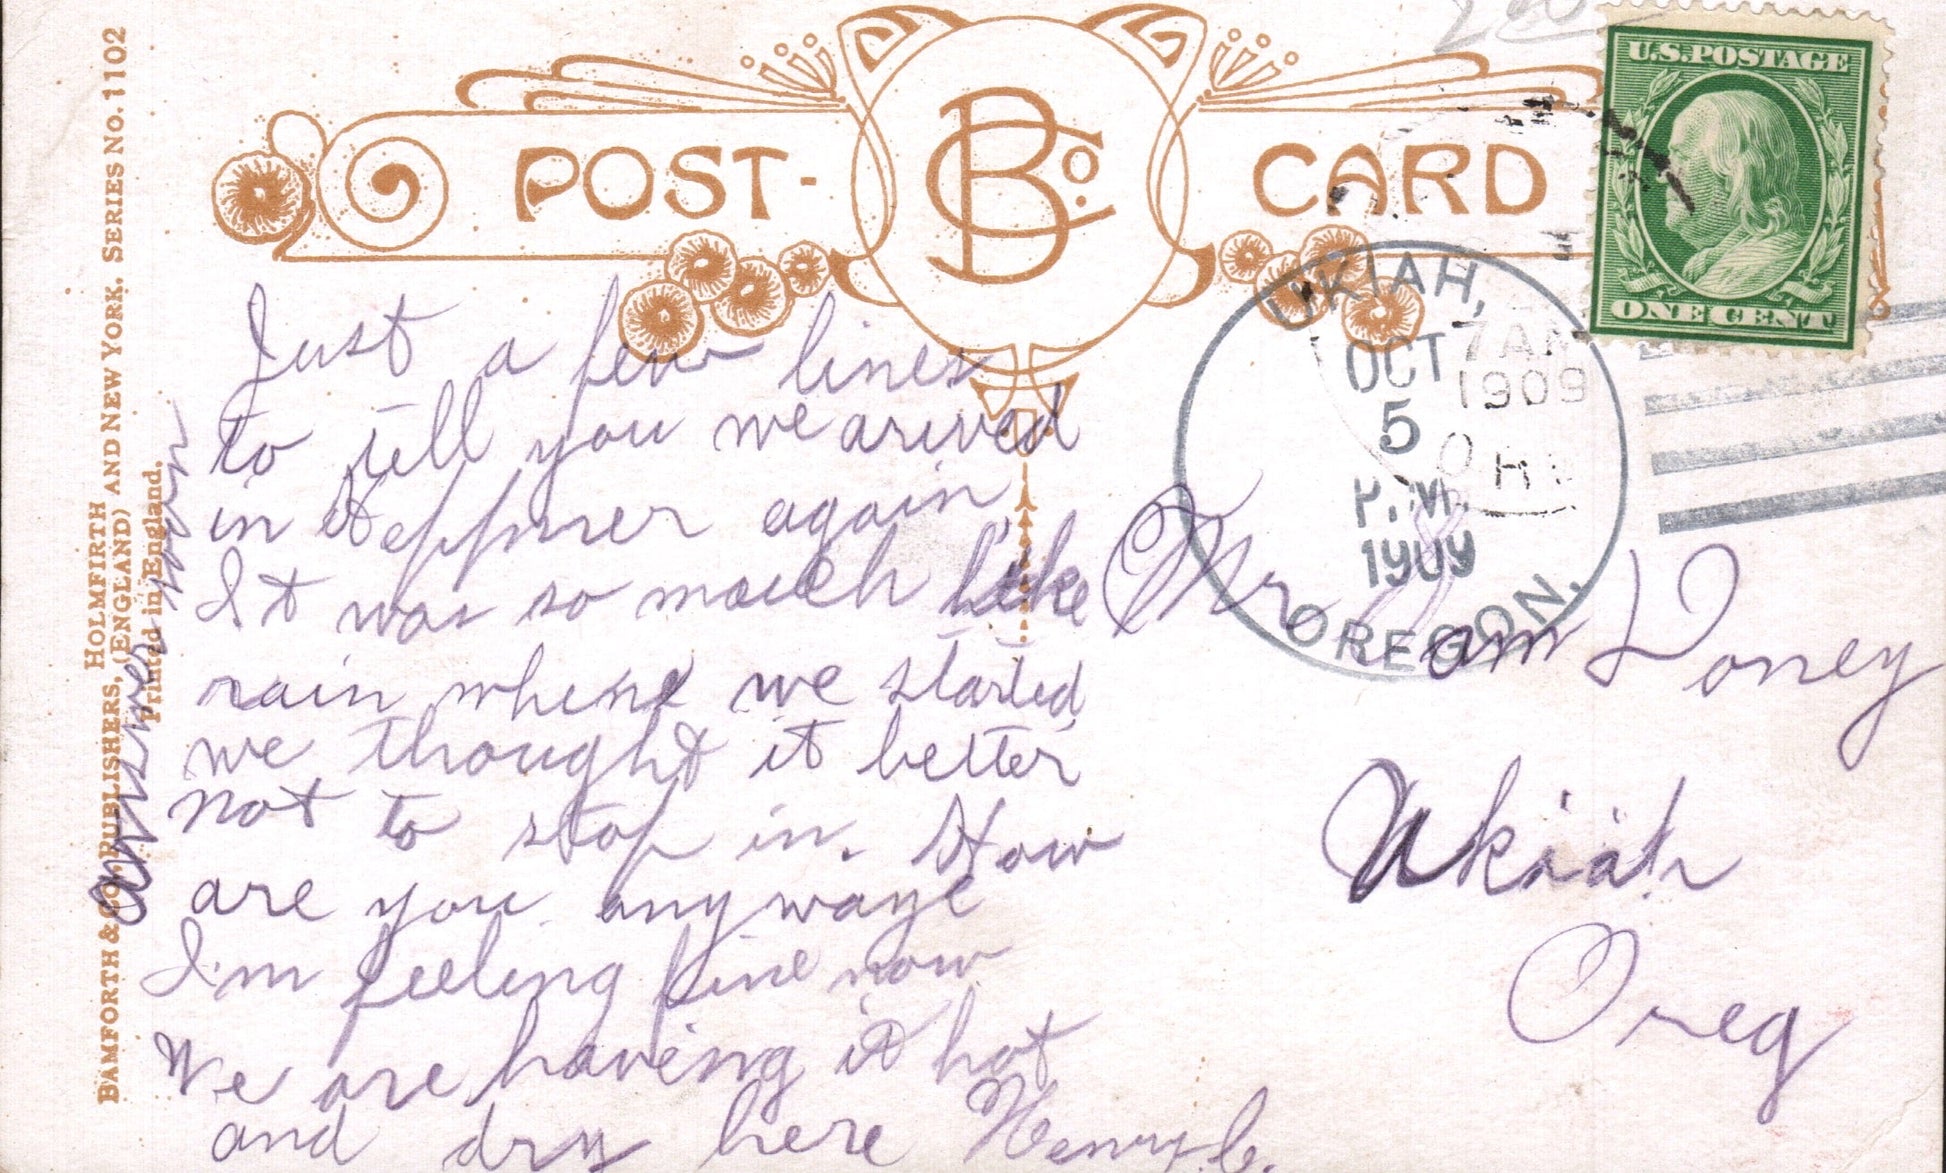 POST- BCo. CARD
U.S. POSTAGE
ONE CENT
UKIAH,
OCT
5
P.M.
1909
OREGON.
7 AM
1909
BAMFORTH & CO. PUBLISHERS, HOLMFIRTH (ENGLAND) AND NEW YORK. SERIES NO. 1102
Printed in England.
Just a few lines
to tell you we arived
in Heppner again
It was so much like
rain where we started
we thought it better
not to stop in. How
are you any waye
I'm feeling fine now
We are having it hot
and dry here Henry C.
answer soon
Mr Jam Doney
Ukiah
Oreg